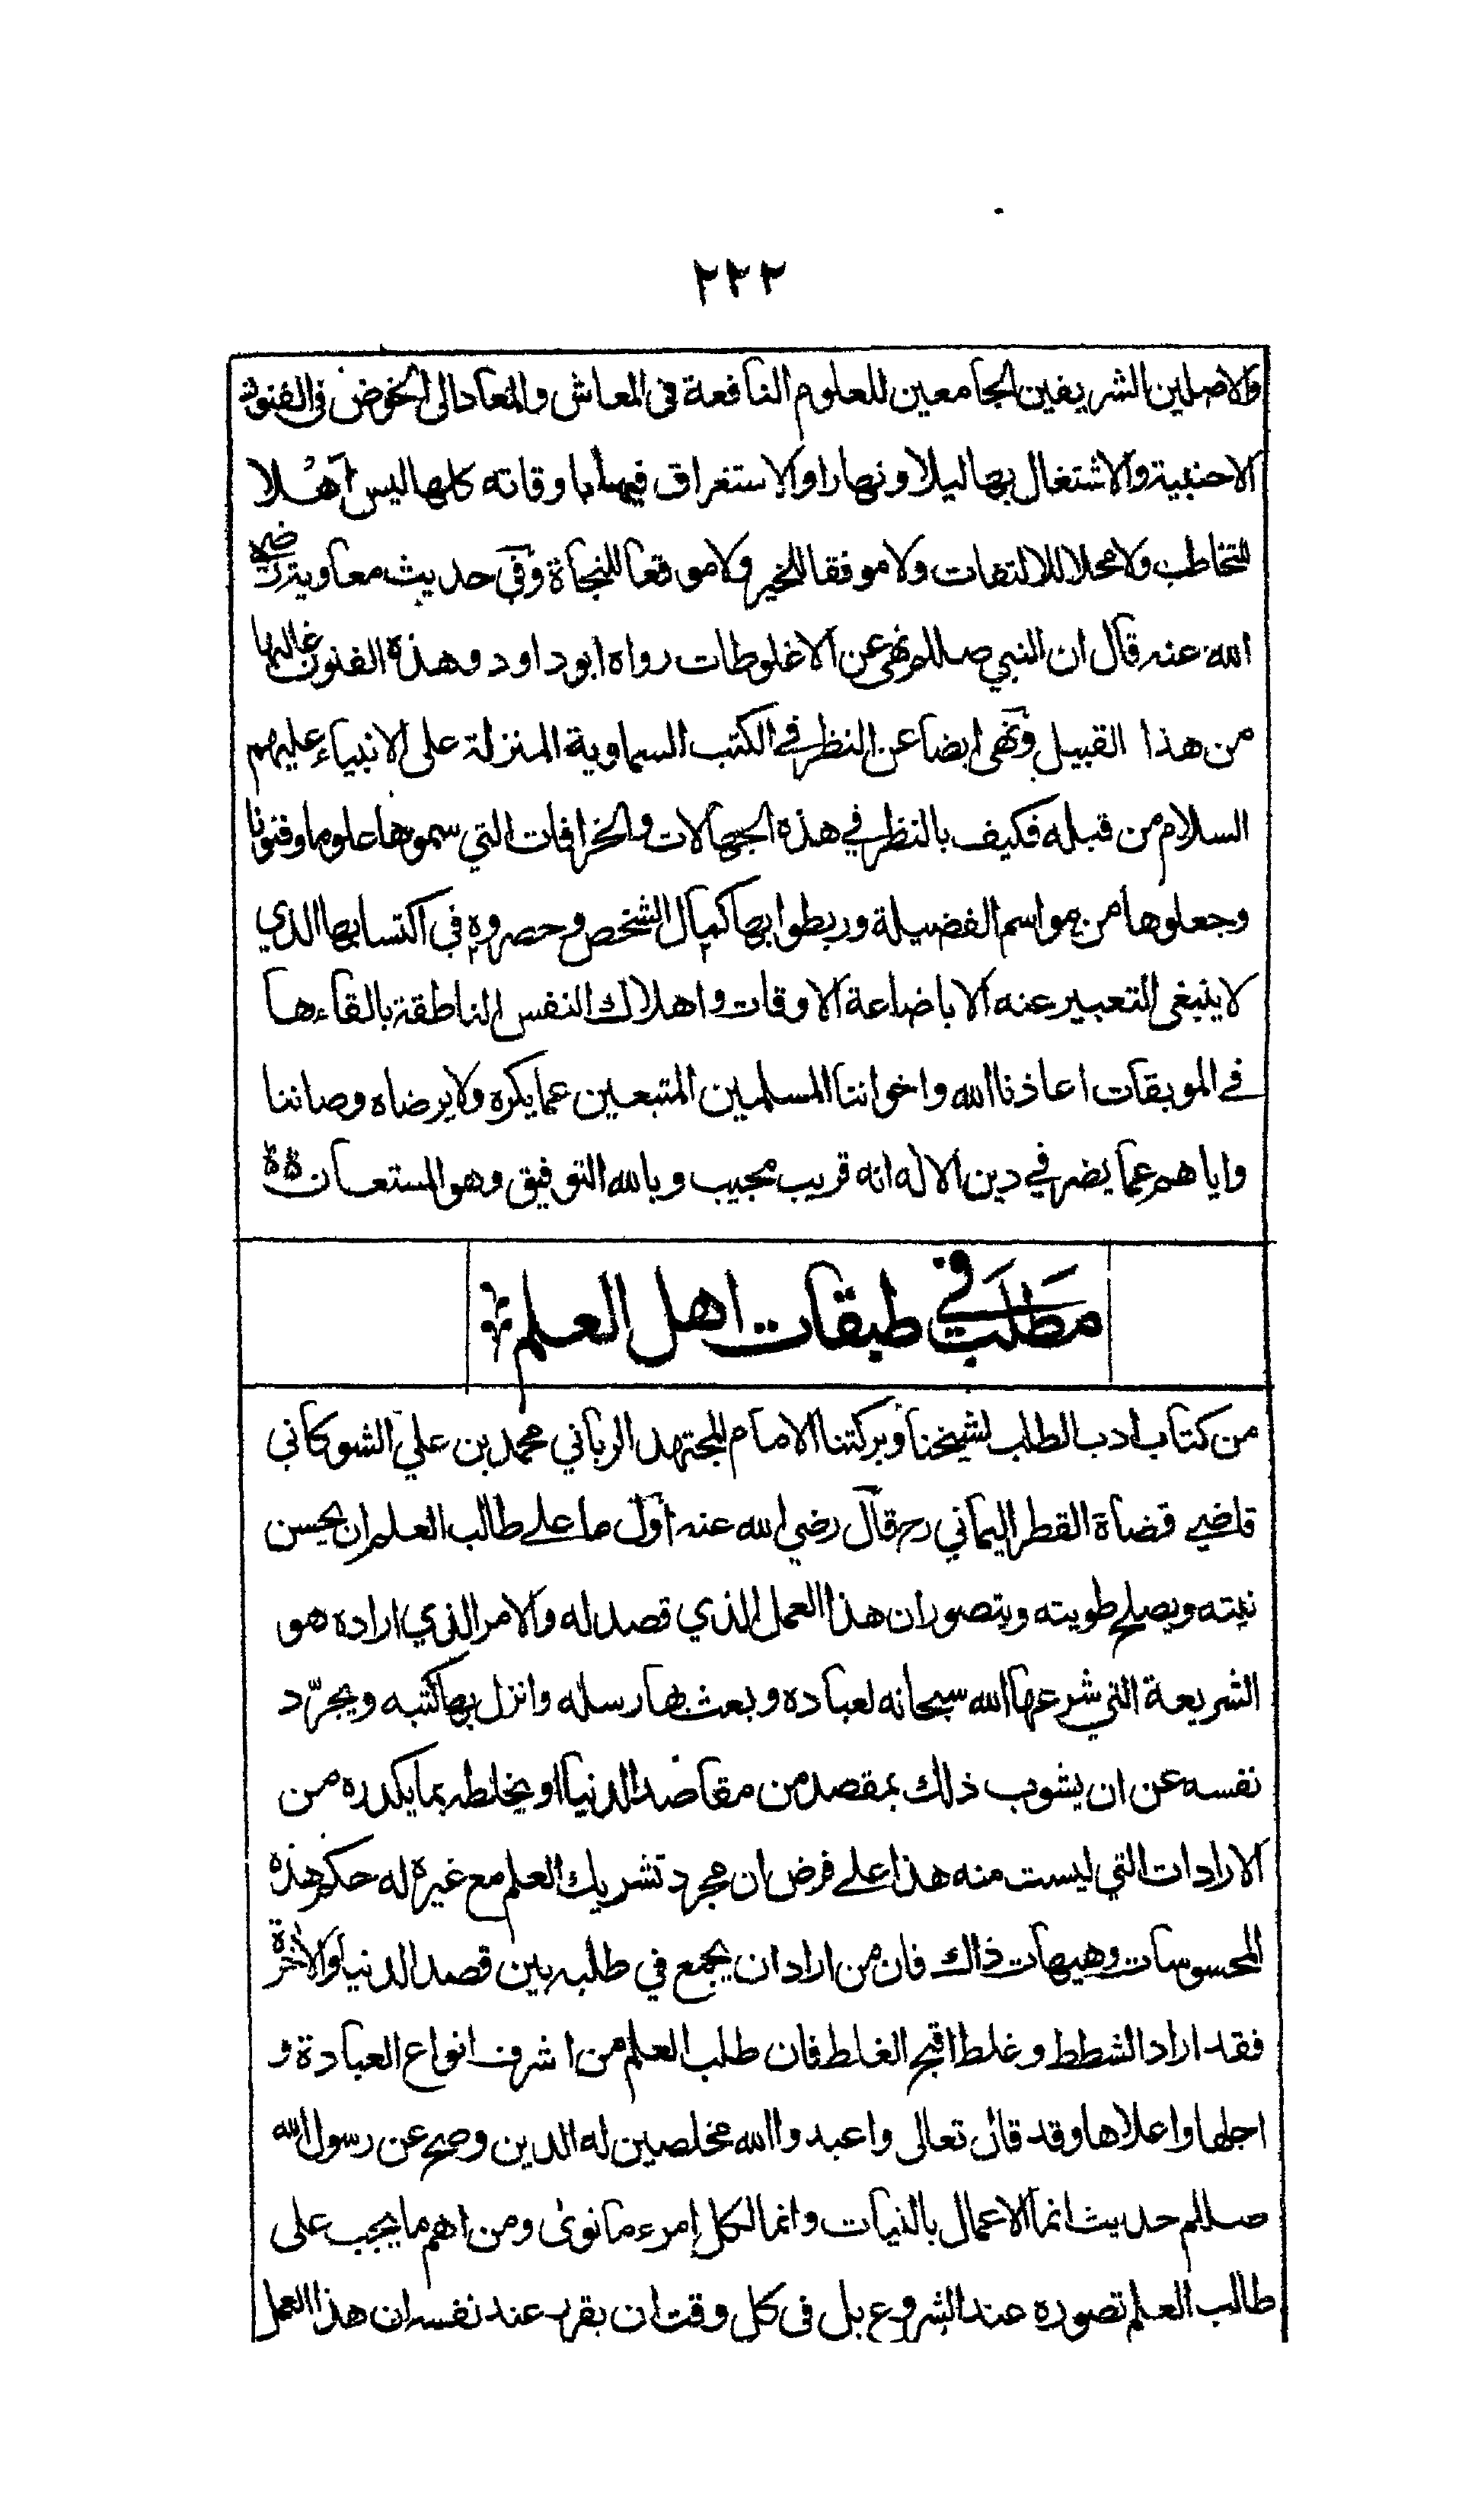 ٢٢٢
والاصلين الشريفين الجامعين للعلوم النافعة في المعاش والمعاد الى الخوض في الفنون
الاجنبية والاشتغال بها ليلا ونهارا والاستغراق فيها باوقاته كلها ليس اهلا
للتخاطب ولا محلا للالتفات ولا موفقا للخير ولا موقعا للنجاة وفي حديث معاوية رضي
الله عنه قال ان النبي صللم نهى عن الاغلوطات رواه ابوداود وهذه الفنون غالبها
من هذا القبيل ونهى ايضا عن النظر في الكتب السماوية المنزلة على الانبياء عليهم
السلام من قبله فكيف بالنظر في هذه الجهالات والخرافات التي سموها علوما وفنونا
وجعلوها من مواسم الفضيلة وربطوا بها كمال الشخص وحصروه في اكتسابها الذي
لا ينبغي التعبير عنه الا باضاعة الاوقات واهلاك النفس الناطقة بالقاءها
في الموبقات اعاذنا الله واخواننا المسلمين المتبعين عما يكره ولا يرضاه وصاننا
واياهم عما يضر في دين الاله انه قريب مجيب وبالله التوفيق وهو المستعان
مَطلَب في طبقات اهل العلم
من كتاب ادب الطلب لشيخنا وبركتنا الامام المجتهد الرباني محمد بن علي الشوكاني
قاضي قضاة القطر اليماني رح قال رضي الله عنه اول ما على طالب العلم ان يحسن
نيته ويصلح طويته ويتصور ان هذا العمل الذي قصد له والامر الذي اراده هو
الشريعة التي شرعها الله سبحانه لعباده وبعث بها رسله وانزل بها كتبه ويجرّد
نفسه عن ان يشوب ذلك بمقصد من مقاصد الدنيا او يخلطه بما يكدره من
الارادات التي ليست منه هذا على فرض ان مجرد تشريك العلم مع غيره له حكم هذه
المحسوسات وهيهات ذاك فان من اراد ان يجمع في طلبه بين قصد الدنيا والاخرة
فقد اراد الشطط وغلط اقبح الغلط فان طلب العلم من اشرف انواع العبادة و
اجلها واعلاها وقد قال تعالى واعبدوا الله مخلصين له الدين وصح عن رسول الله
صللم حديث انما الاعمال بالنيات وانما لكل امرء ما نوى ومن اهم ما يجب على
طالب العلم تصوره عند الشروع بل في كل وقت ان يقرر عند نفسه ان هذا العمل